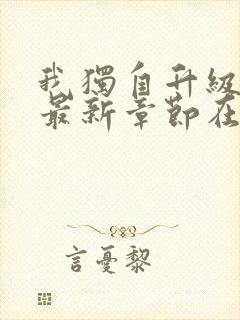 我獨自升級
最新章節在
言憂黎